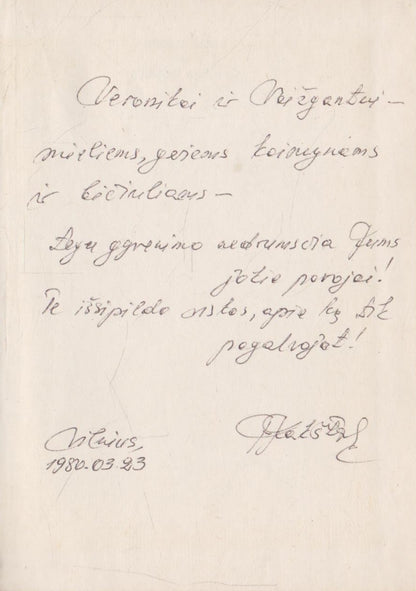 Veronikai ir Vaižgantui –
mieliems, geriems kaimynams
ir bičiuliams –
Tegu gyvenimo nedrumsčia Jums
jokie pavojai!
Te išsipildo viskas, apie ką tik
pagalvojat!
Vilnius,
1980.03.23